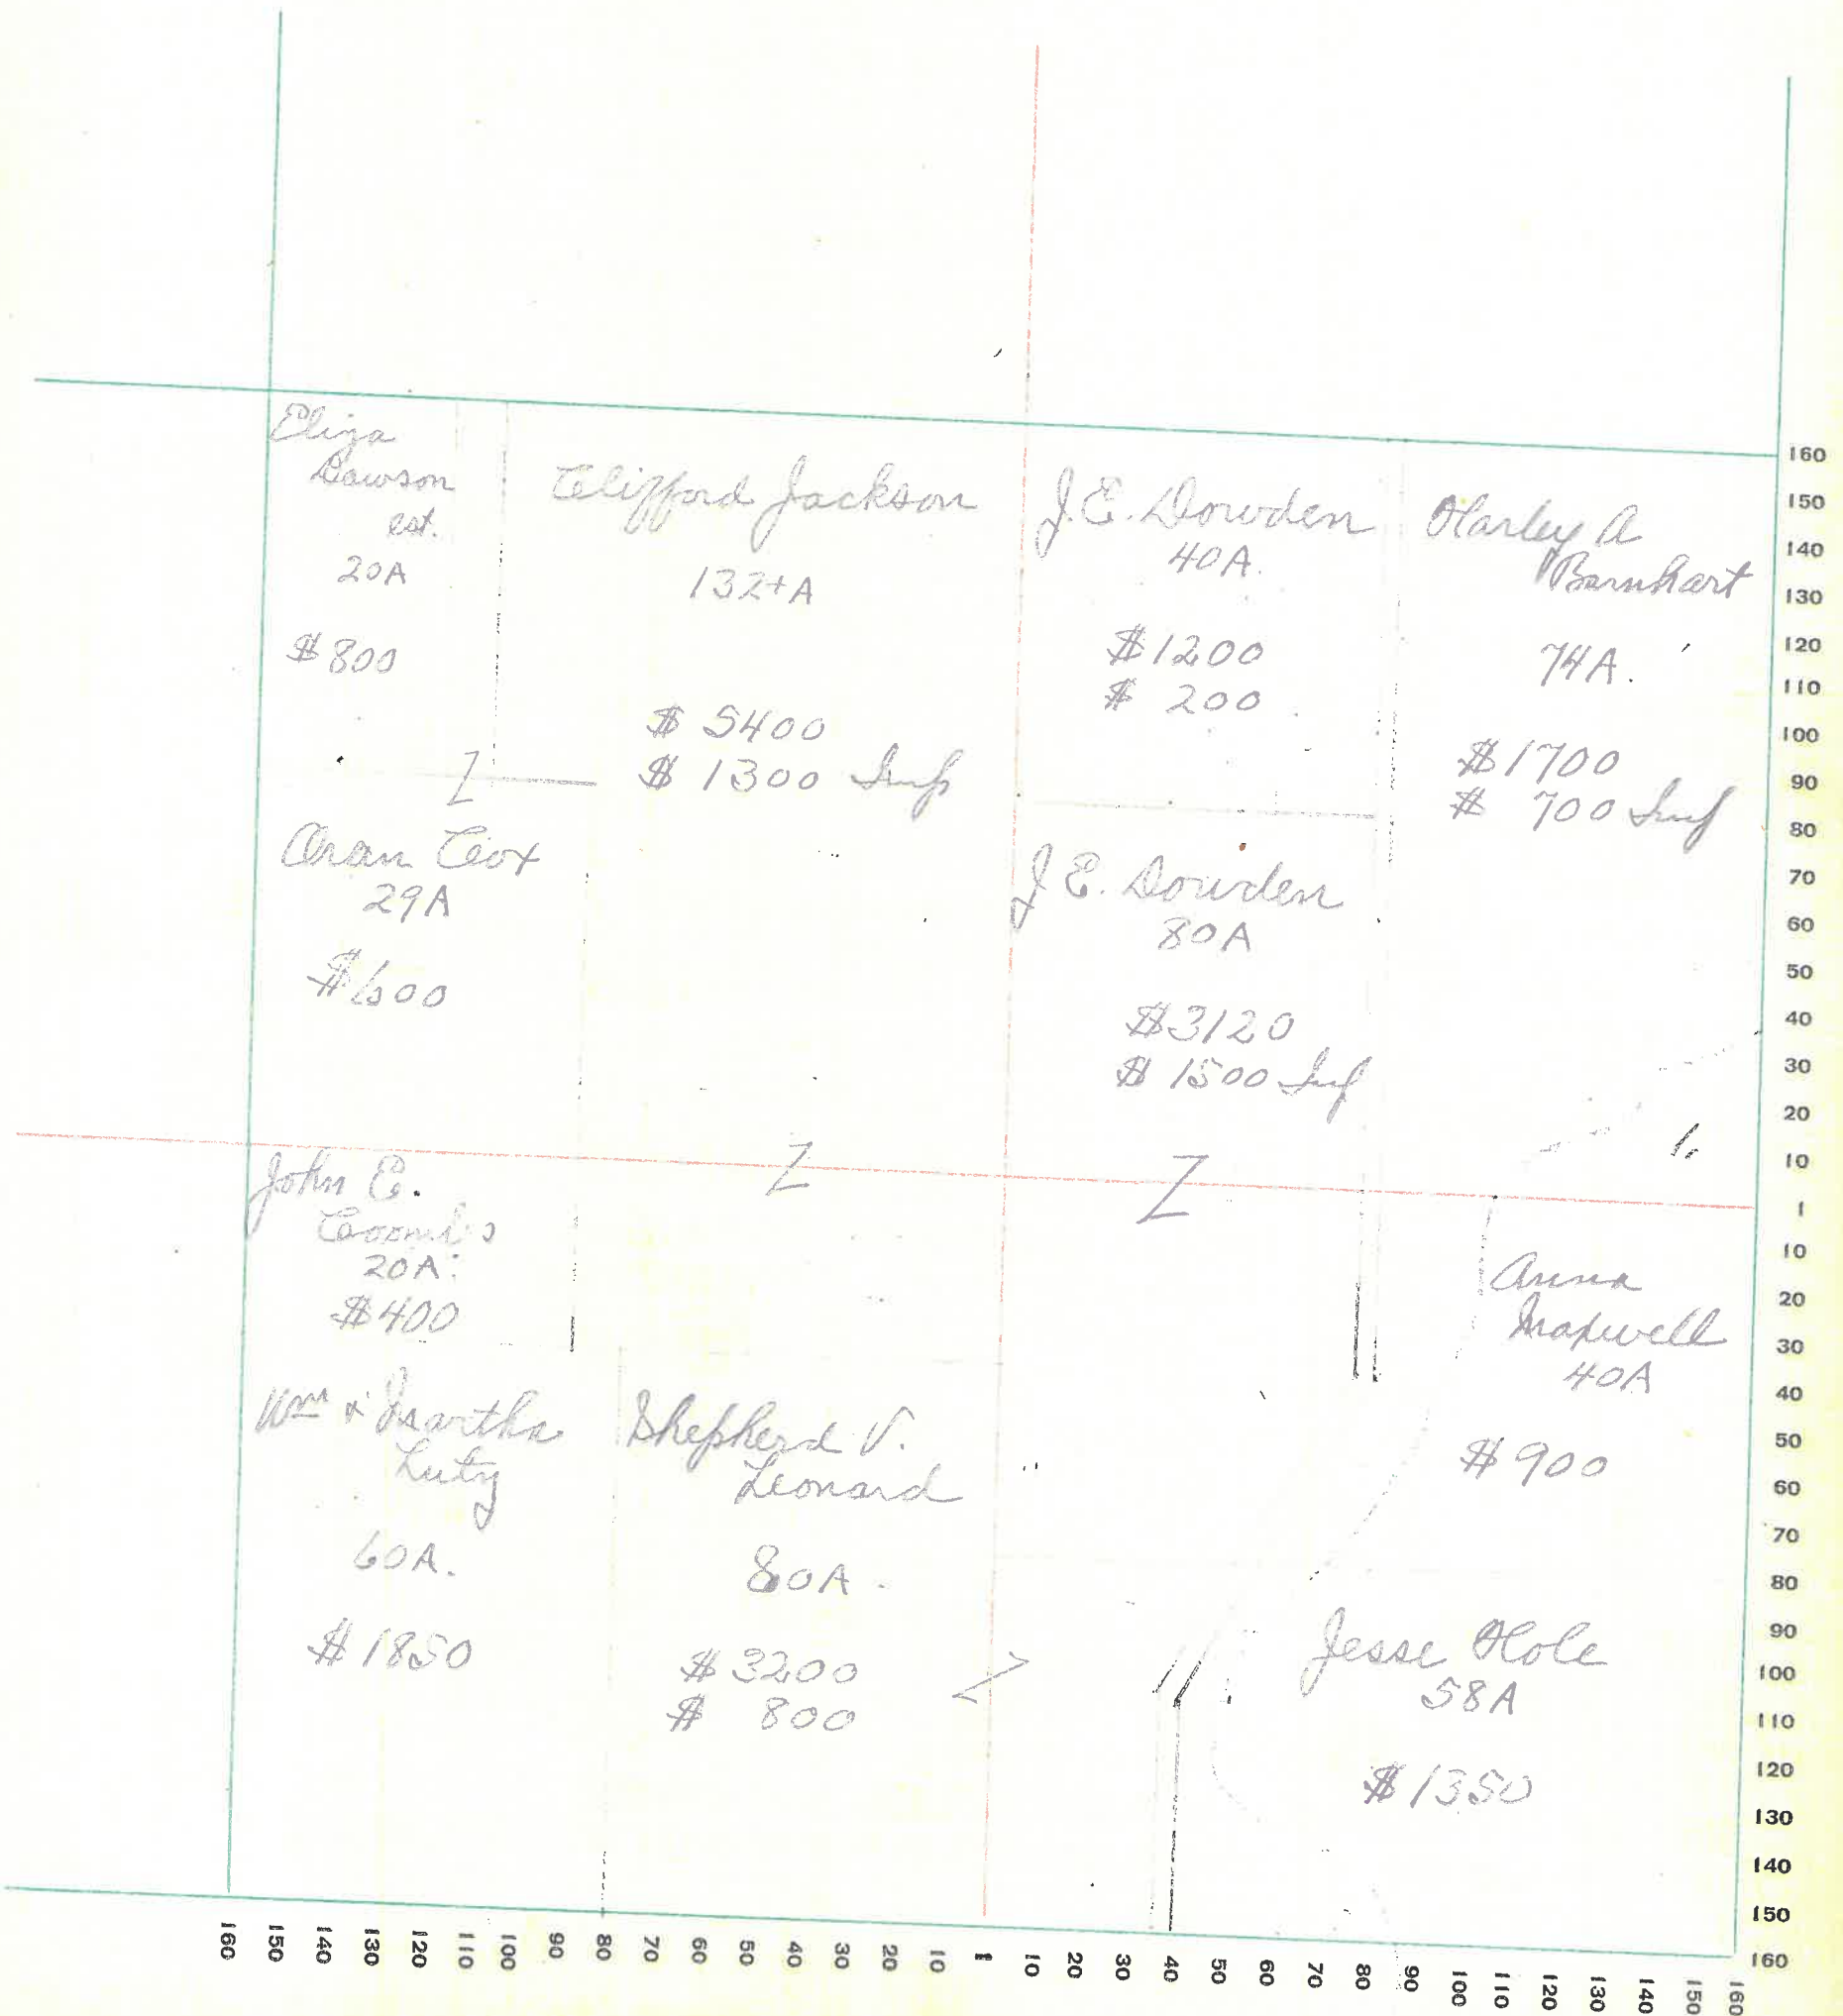 Eliza
Dawson
est.
20A
$800
Clifford Jackson
132+A
$5400
$1300 Imp
J.E. Dowden
40A.
$1200
$ 200
Harley A
Barnhart
74A.
$1700
$ 700 Imp
Oran Cox
29A
$600
J.E. Dowden
80A
$3120
$1500 Imp
John E.
Coombs
20A.
$400
Wm & Martha
Luty
60A.
$1850
Shepherd V.
Leonard
80A.
$3200
$ 800
Anna
Maxwell
40A
$900
Jesse Hole
58A
$1350
160
150
140
130
120
110
100
90
80
70
60
50
40
30
20
10
1
10
20
30
40
50
60
70
80
90
100
110
120
130
140
150
160
160 150 140 130 120 110 100 90 80 70 60 50 40 30 20 10 1 10 20 30 40 50 60 70 80 90 100 110 120 130 140 150 160